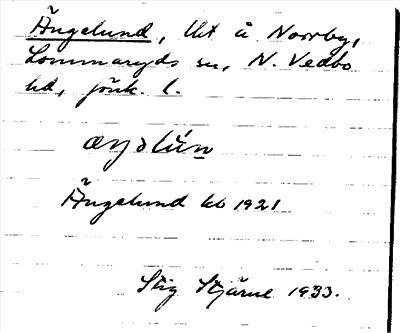 Ängelund, lht å Norrby,
Lommaryds sn, N. Vedbo
hd, Jönk. l.
æŋəlún
Ängelund kb 1921
Stig Stjärne 1933.